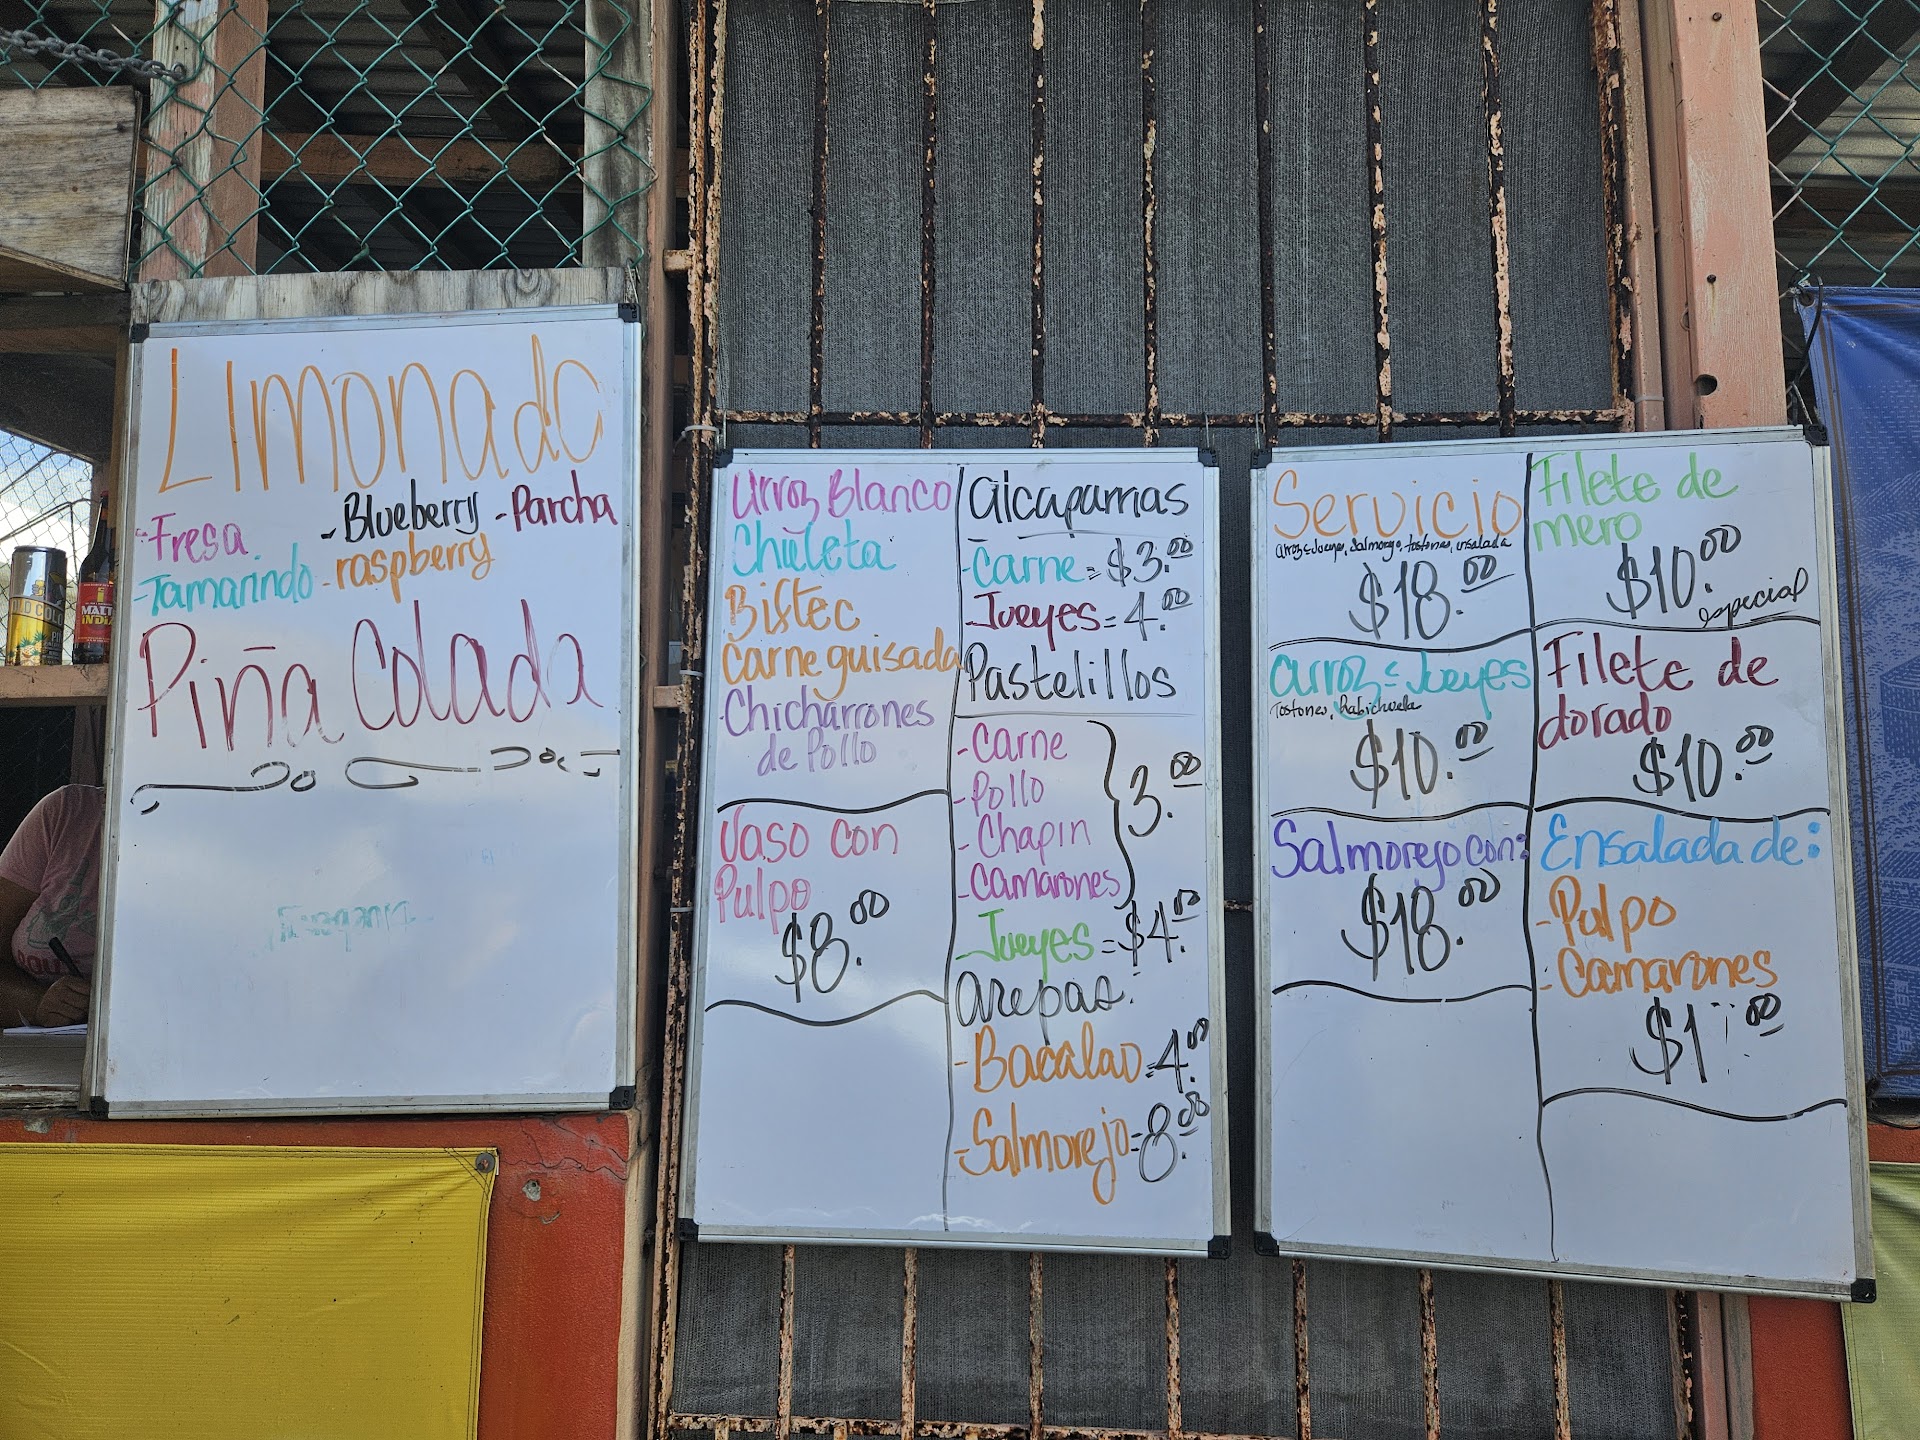 LIMONADA
-Fresa -Blueberry -Parcha
-Tamarindo -raspberry
Piña Colada
MALTA
INDIA
Arroz Blanco
Chuleta
Biftec
Carne guisada
Chicharrones
de Pollo
Vaso con
Pulpo
$8.00
alcapurrias
-Carne = $3.00
-Jueyes = 4.00
Pastelillos
-Carne
-Pollo
-Chapin
-Camarones
3.00
-Jueyes = $4.00
arepas:
-Bacalao = 4.00
-Salmorejo = 8.00
Servicio
arroz c Jueyes, Salmorejo, tostones, ensalada
$18.00
arroz c Jueyes
Tostones, Habichuela
$10.00
Salmorejo con:
$18.00
Filete de
mero
$10.00
especial
Filete de
dorado
$10.00
Ensalada de:
-Pulpo
-Camarones